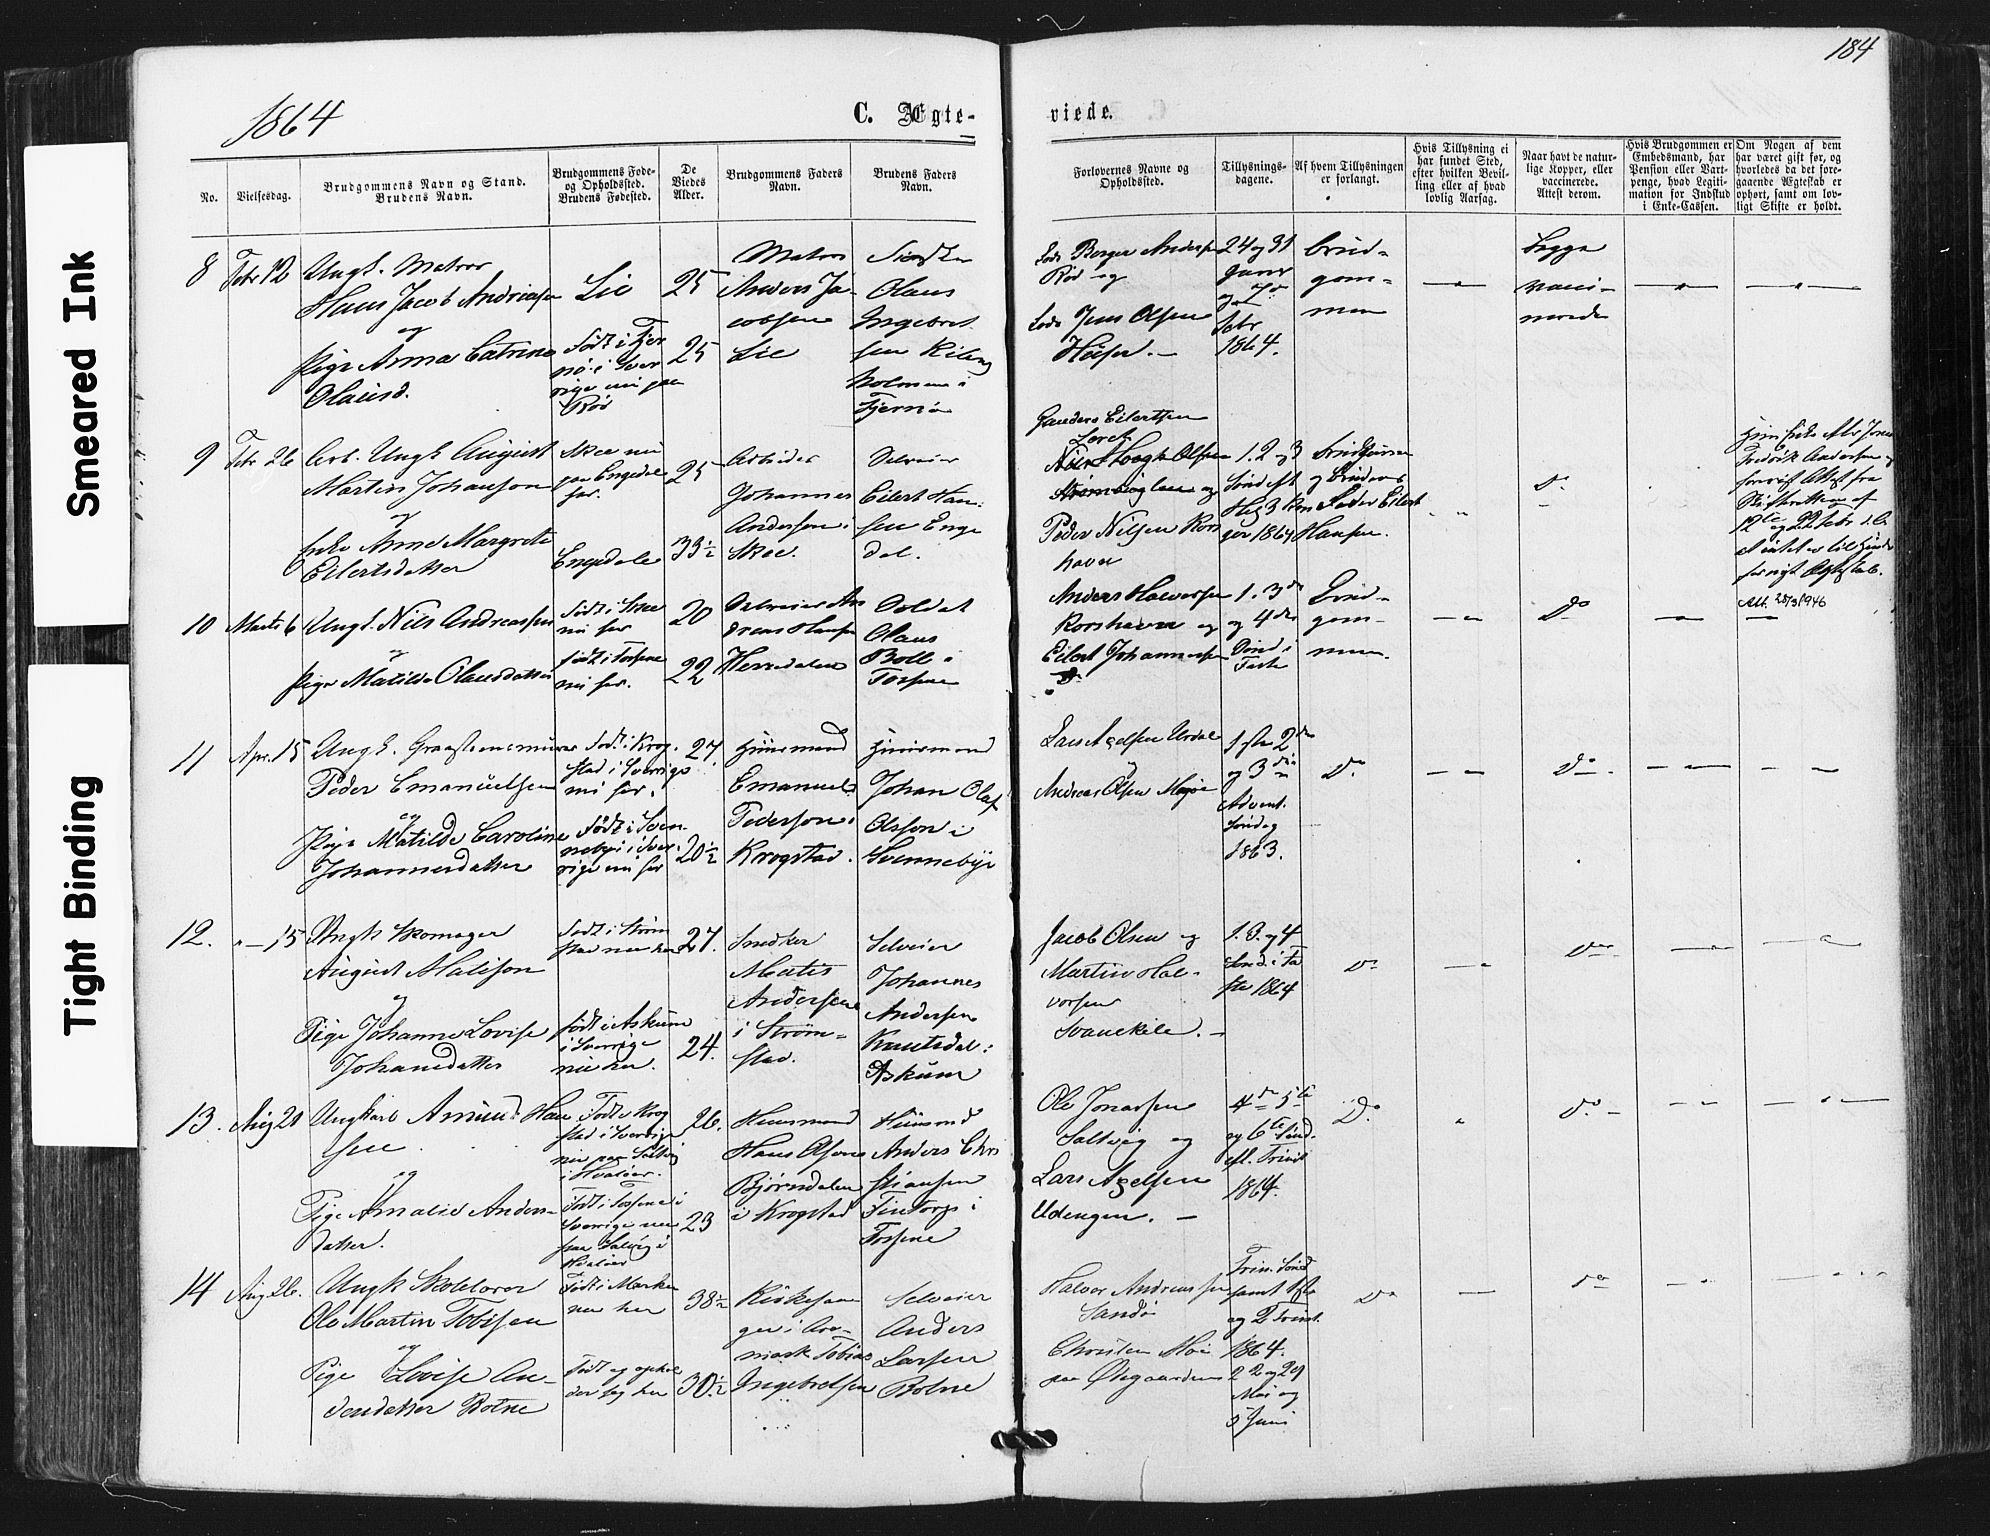 184
1864
C. Ægte-
viede.
No.
Vielsesdag.
Brudgommens Navn og Stand.
Brudens Navn.
Brudgommens Føde-
og Opholdssted.
Brudens Fødested.
De
Viedes
Alder.
Brudgommens Faders
Navn.
Brudens Faders
Navn.
Forlovernes Navne og
Opholdssted.
Tillysnings-
dagene.
Af hvem Tillysningen
er forlangt.
Hvis Tillysning ei
har fundet Sted,
efter hvilken Bevil-
ling eller af hvad
lovlig Aarsag.
Naar havt de natur-
lige Kopper, eller
vaccinerede.
Attest derom.
Hvis Brudgommen er
Embedsmand, har
Pension eller Vart-
penge, hvad Legiti-
mation for Indskud
i Enke-Cassen.
Om Nogen af dem
har været gift før, og
hvorledes da det fore-
gaaende Ægteskab er
ophørt, samt om lov-
ligt Skifte er holdt.
Smeared Ink
Tight Binding
8
Febr 12
Ungk. Matros
Hans Jacob Andreasen
og
Pige Anna Catrine
Olausd.
Lie
født i Tjer
nø i Sver
rige nu paa
Rød
25
25
Matros
Anders Ja-
cobsen
Lie
Olaus
Ingebret
sen Kile
holmen i
Tjernø
Lods Borger Andersen
Rød og
Lods Jens Olsen
Huser.
24 og 31
Janr
og 7de
Febr
1864.
Brud-
gom-
men
Begge
vacci-
nerede
9
Febr 26
Arb. Ungk August
Martin Johanson
og
Enke Anne Margrete
Eilertsdatter
Skee nu
paa Engedal
her.
Engedal
25
33½
Arbeider
Johannes
Anderson i
Skee.
Selveier
Eilert Han-
sen Enge
dal.
Eilertsen
Olsen
og
Peder Nilsen Kors
havn
1. 2 og 3
1864
og Brudens
Fader Eilert
Hansen.
Do
Fredrik Andersen
Attest fra
Skifteretten af
22 Febr
Att. 28/3 1946
10
Marts 6
Ungk. Nils Andreassen
og
Pige Matilde Olausdatter
født i Skee
nu her
født i Tossene
nu her.
20
22
Selveier An
dreas Hansen
Herredalen
Soldat
Olaus
Boll i
Tossene
Anders Halvorsen
Korshavn og
Eilert Johannesen
Do
1. 3de
og 4de
Sønd i
Faste
Brud-
gom-
men.
Do
11
Apr. 15
Ungk. Graastensmurer
Peder Emanuelsen
og
Pige Matilde Caroline
Johannesdatter
født i Krog-
stad i Sverrige
nu her.
født i Sven-
neby i Sver-
rige nu her
27.
20½
Huusmand
Emanuel
Pederson i
Krogstad.
Huusmand
Johan Olaf
Olsson i
Svenneby
Lars Axelsen Urdal
og
Andreas Olsen
1ste 2den
og 3die
Advent
Søndag
1863.
Do
Do
12.
15
Ungk Skomager
August Matison
og
Pige Johanne Lovise
Johansdatter
født i Strøm
stad nu her
født i Askum
i Sverrige
nu her.
27.
24.
Snedker
Mates
Andersen
i Strøm-
stad.
Selveier
Johannes
Andersen
i
Askum
Jacob Olsen og
Martin Hal-
vorsen
Svanekile.
1. 3. og 4
Sønd. i Fa
ste 1864
Do
Do
13.
Aug 21
Ungkarl Amund Han
sen
og
Pige Amalie Anders-
datter.
født i Krog
stad i Sverrige
nu paa
i Hvaler.
født i Tossene i
Sverrige nu
paa
Hvaler
26.
23
Huusmand
Hans Olsen
Bjørndalen
i Krogstad
Huusmd
Anders Chri
stiansen
Fintorp i
Tossene
Ole Jonassen
Saltvig og
Lars Axelsen
Udengen.
4de 5te
og 6te Sønd.
eft. Trinit
1864.
Do
Do
14
Aug 26.
Ungk Skolelærer
Ole Martin Tobisen
og
Pige Lovise An-
dersdatter Botne
født i Marker
nu her
født og ophol
der sig her
38½
30½
Kirkesan
ger i Are-
mark Tobias
Ingebretsen
Selveier
Anders
Larsen
Botne
Halvor Andreassen
Sandø
Christen Moe
paa Ødegaarden
Trin. Sønd
samt 1ste
og 2 Trinit.
1864.
22 og 29
Mai og
5 Juni
Do
Do